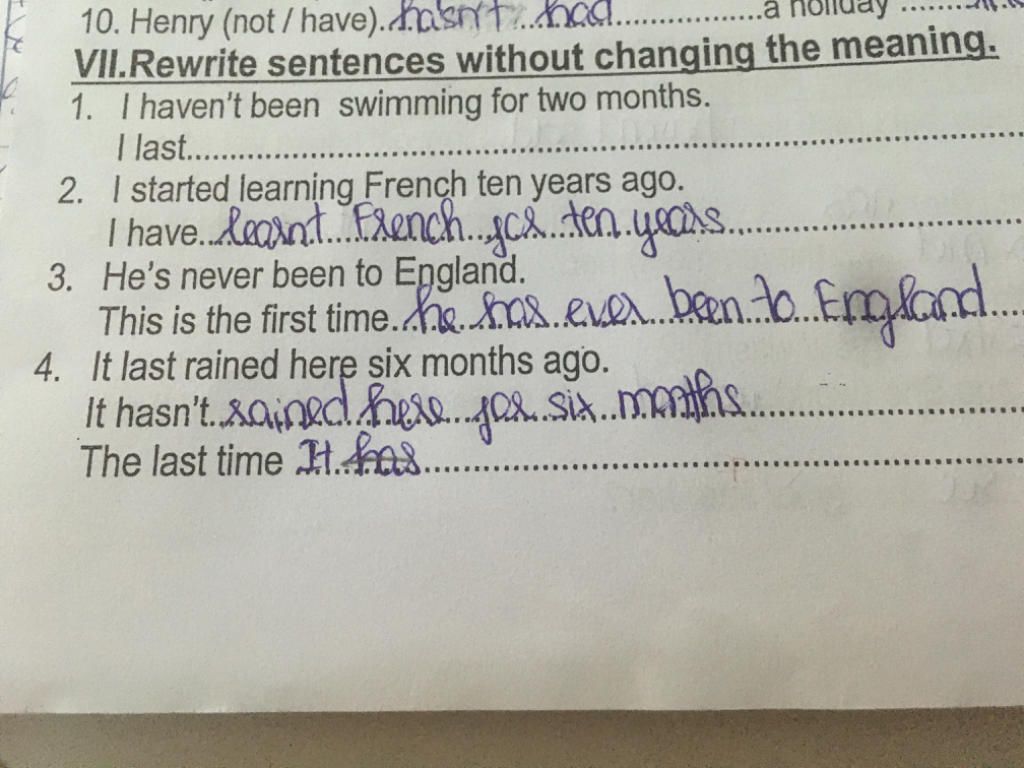 10. Henry (not / have)..hasn't...had..................a holiday ..........
VII.Rewrite sentences without changing the meaning.
1. I haven't been swimming for two months.
I last................................................................................
2. I started learning French ten years ago.
I have...learnt....French...for...ten.years...............................
3. He's never been to England.
This is the first time...he..has..ever...been..to..England.....
4. It last rained here six months ago.
It hasn't..rained.here...for..six..months...........................
The last time It..has..............................................................